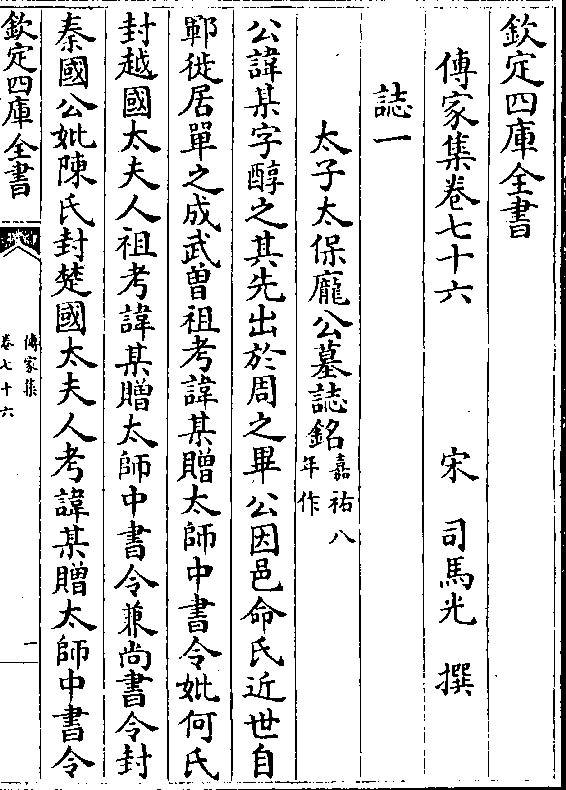 欽定四庫全書
傳家集卷七十六　宋　司馬光　撰
誌一
太子太保龐公墓誌銘嘉祐八年作
公諱某字醇之其先出於周之畢公因邑命氏近世自
鄆徙居單之成武曽祖考諱某贈太師中書令妣何氏
封越國太夫人祖考諱某贈太師中書令兼尚書令封
秦國公妣陳氏封楚國太夫人考諱某贈太師中書令
欽定四庫全書
傳家集
卷七十六
一